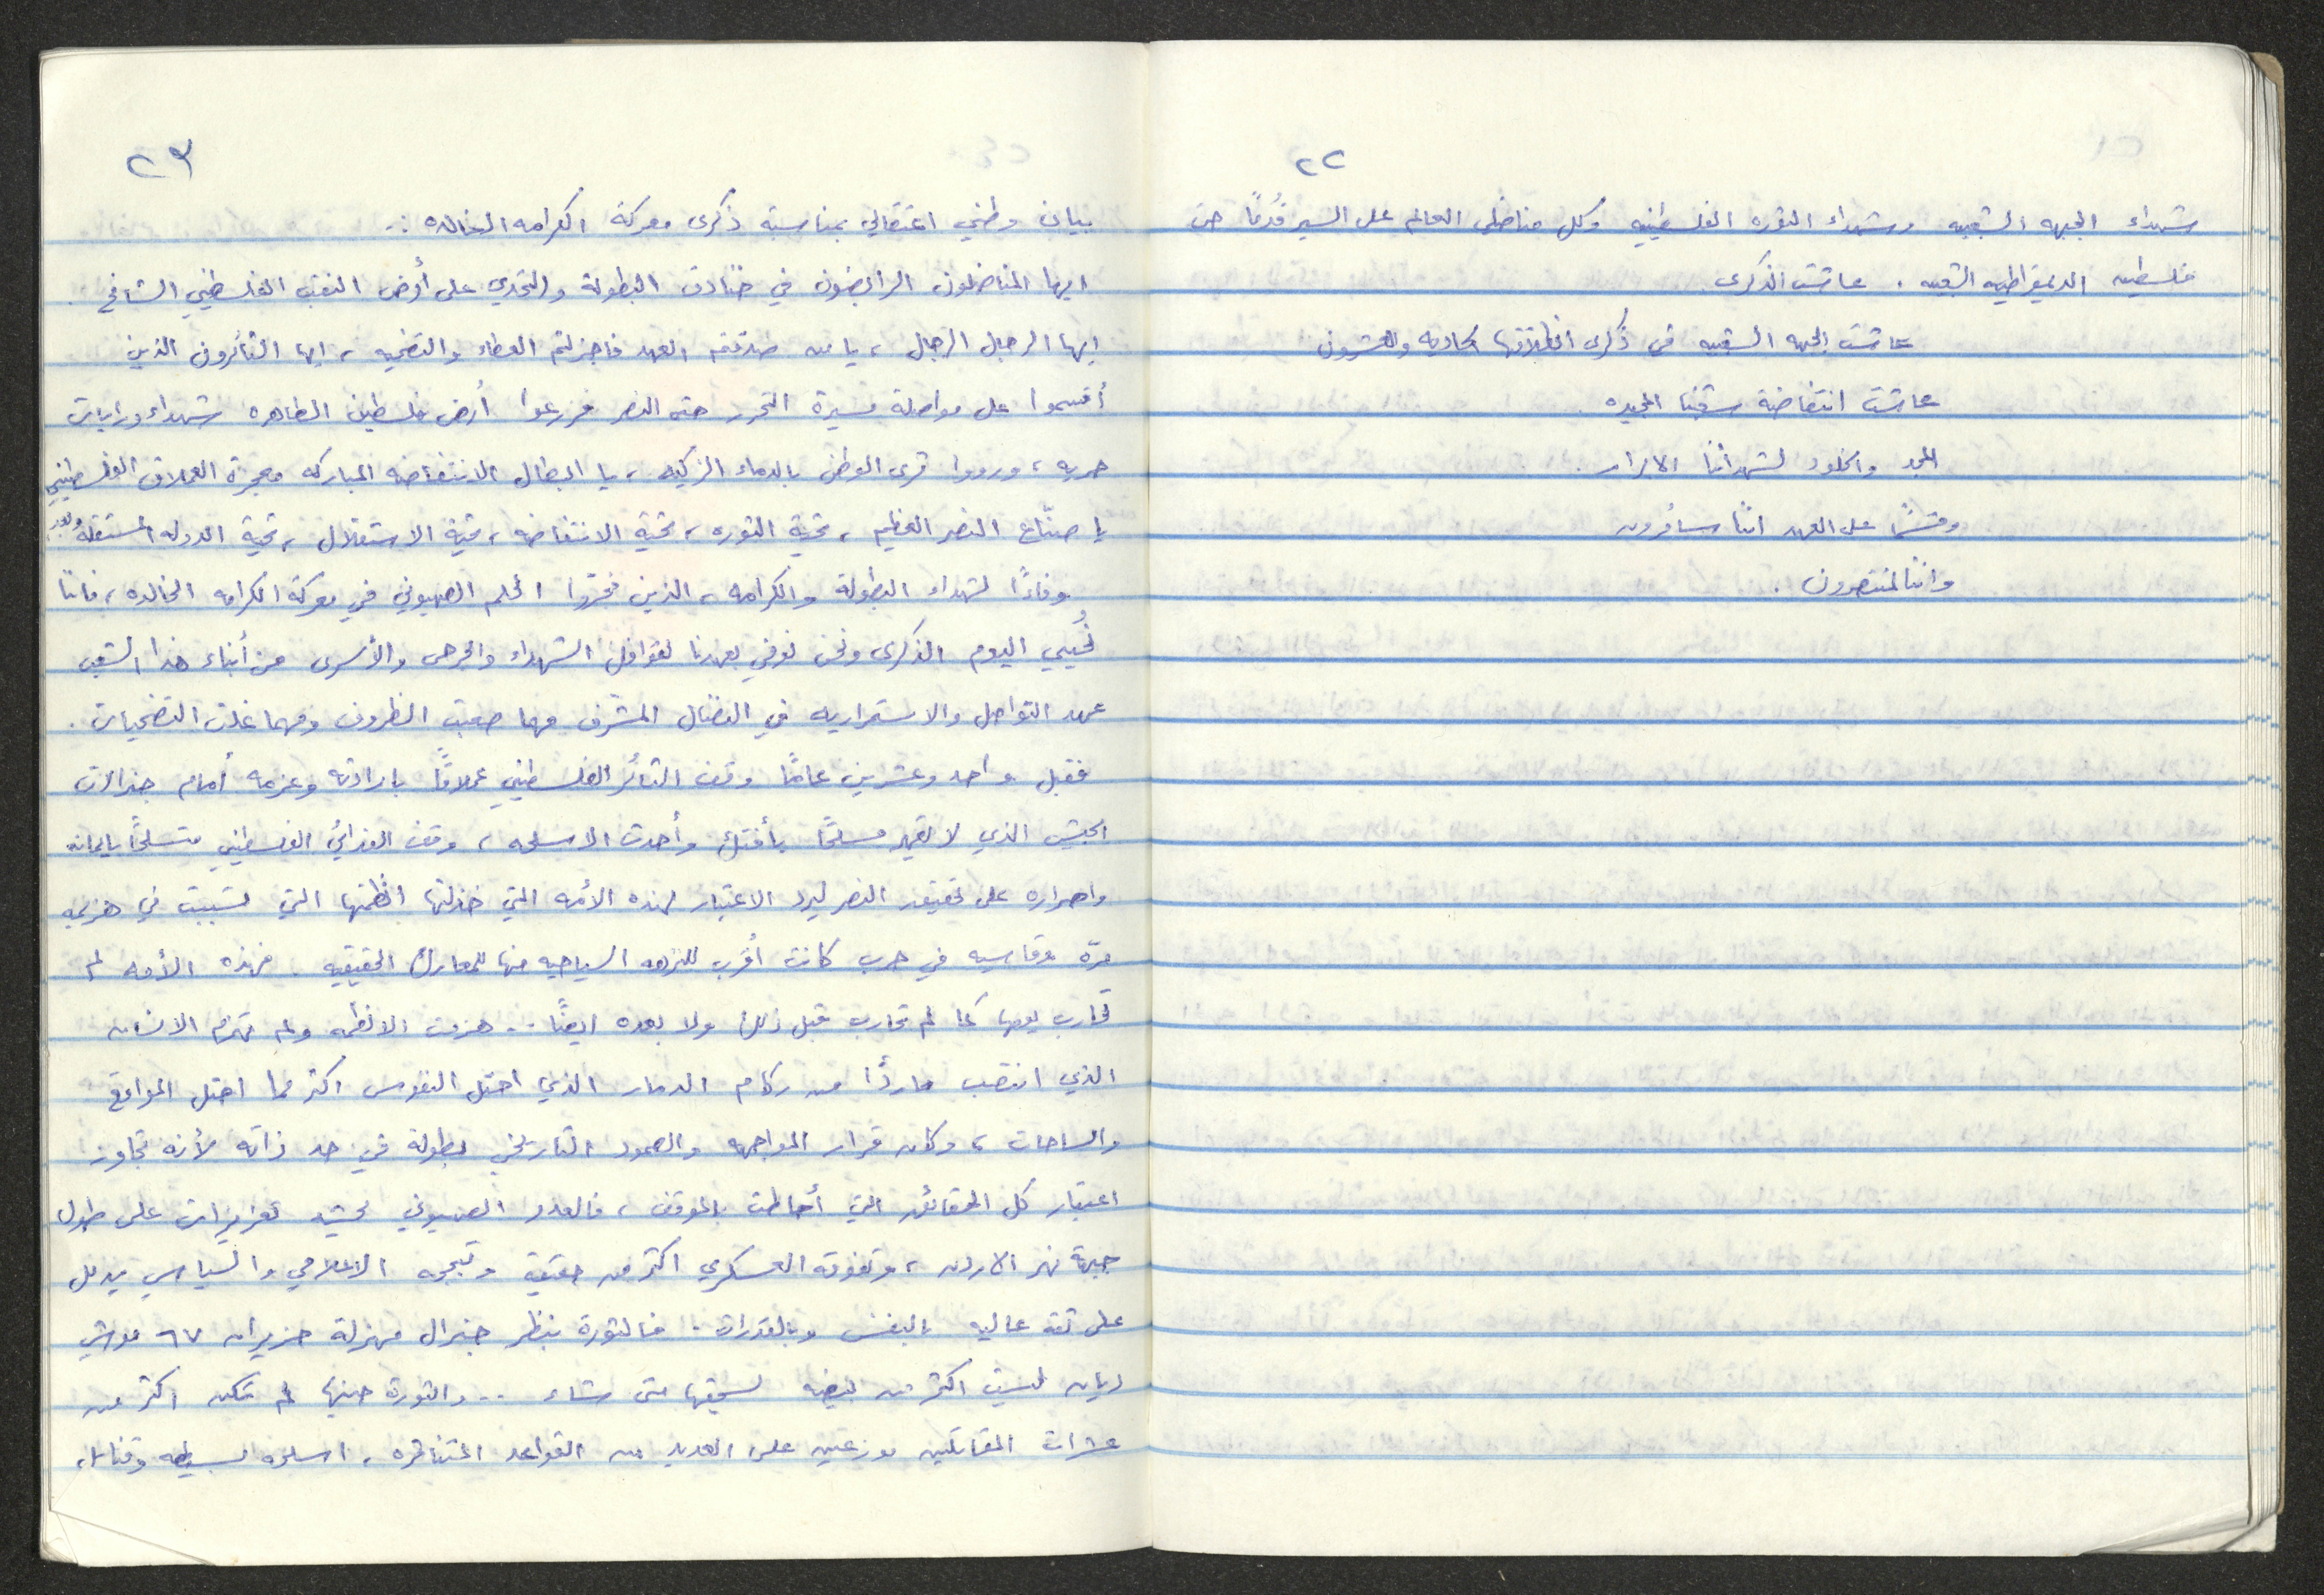 ٢٢
شهداء الجبهه الشعبيه وشهداء الثوره الفلسطينيه وكل مناضلي العالم على السير قُدمًا حتى
فلسطين الديمقراطيه الشعبيه . عاشت الذكرى
عاشت الجبهه الشعبيه في ذكرى انطلاقتها الحاديه والعشرون
عاشت انتفاضة شعبنا المجيده
المجد والخلود لشهدائنا الابرار
وقسمًا على العهد اننا سائرون
واننا لمنتصرون .
٢٣
بيان وطني اعتقالي بمناسبة ذكرى معركة الكرامه الخالده :-
ايها المناضلون الرابضون في خنادق البطولة والتحدي على أرض النقب الفلسطيني الشامخ .
ايها الرجال الرجال ، يا من صدقتم العهد فاجزلتم العطاء والتضحيه ، ايها الثائرون الذين
أقسموا على مواصلة مسيرة التحرر حتى النصر فزرعوا أرض فلسطين الطاهره شهداء ورايات
حريه ، ورووا ثرى الوطن بالدماء الزكيه ، يا ابطال الانتفاضه المباركه معجزة العملاق الفلسطيني
يا صنّاع النصر العظيم ، تحية الثوره ، تحية الانتفاضه ، تحية الاستقلال ، تحية الدوله المستقلة وبعد
وفاءًا لشهداء البطولة والكرامه ، الذين قهروا الحلم الصهيوني في معركة الكرامه الخالده ، فاننا
نُحيي اليوم الذكرى ونحن نوفي بعهدنا لقوافل الشهداء والجرحى والأسرى من أبناء هذا الشعب
عهد التواصل والاستمراريه في النضال المشرف مهما صعبت الظروف ومهما غلت التضحيات .
فقبل واحد وعشرين عامًا وقف الثائر الفلسطيني عملاقًا بارادته وعزمه أمام جنرالات
الجيش الذي لا يقهر مسلحًا بأفتك وأحدث الاسلحه ، وقف الفدائي الفلسطيني متسلحًا بايمانه
واصراره على تحقيق النصر ليرد الاعتبار لهذه الأمه التي خذلتها انظمتها التي تسببت في هزيمه
مرّه وقاسيه في حرب كانت أقرب للنزهه السياحيه منها للمعارك الحقيقيه . فهذه الأمه لم
تحارب يومها كما لم تحارب قبل ذلك ولا بعده ايضًا .. هزمت الانظمه ولم تهزم الانسان
الذي انتصب ماردًا من ركام الدمار الذي احتل النفوس اكثر مما احتل المواقع
والساحات ، وكان قرار المواجهه والصمود التاريخي بطولة في حد ذاته لأنه تجاوز
اعتبار كل الحقائق التي أحاطت بالموقف ، فالعدو الصهيوني يحشد تعزيزات على طول
جبهة نهر الاردن ، وتفوقه العسكري اكثر من حقيقة وتبجحه الاعلامي والسياسي يدلل
على ثقه عاليه بالنفس وبالقدرات . فالثورة بنظر جنرال مهزلة حزيران ٦٧ موشي
ديان ليست اكثر من بيضه لسحقها متى شاء .. والثورة حينها لم تكن اكثر من
عشرات المقاتلين موزعين على العديد من القواعد المتناثره ، اسلحه بسيطه وقنابل